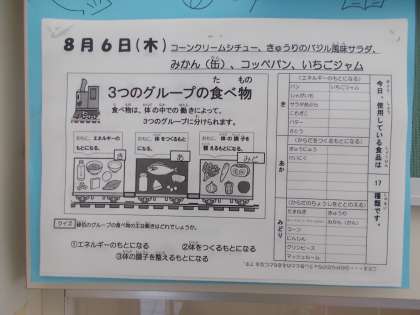 8月6日(木) コーンクリームシチュー、きゅうりのバジル風味サラダ、
みかん(缶)、コッペパン、いちごジャム
た もの
3つのグループの食べ物
食べ物は、体の中での働きによって、
3つのグループに分けられます。
おもに、エネルギーの
もとになる。
き
おもに、体をつくるもと
になる。
あか
おもに、体の調子を
整えるもとになる。
みどり
クイズ 緑色のグループの食べ物の主な働きはどれでしょうか。
①エネルギーのもとになる
②体をつくるもとになる
③体の調子を整えるもとになる
今日、使用している食品は 17 種類です。
き
(エネルギーのもとになる)
パン いちごジャム
じゃがいも
サラダあぶら
こむぎこ
バター
さとう
あか
(からだをつくるもとになる)
ぎゅうにゅう
とりにく
みどり
(からだのちょうしをととのえる)
たまねぎ きゅうり
みかん(かん)
コーン
にんじん
グリンピース
マッシュルーム